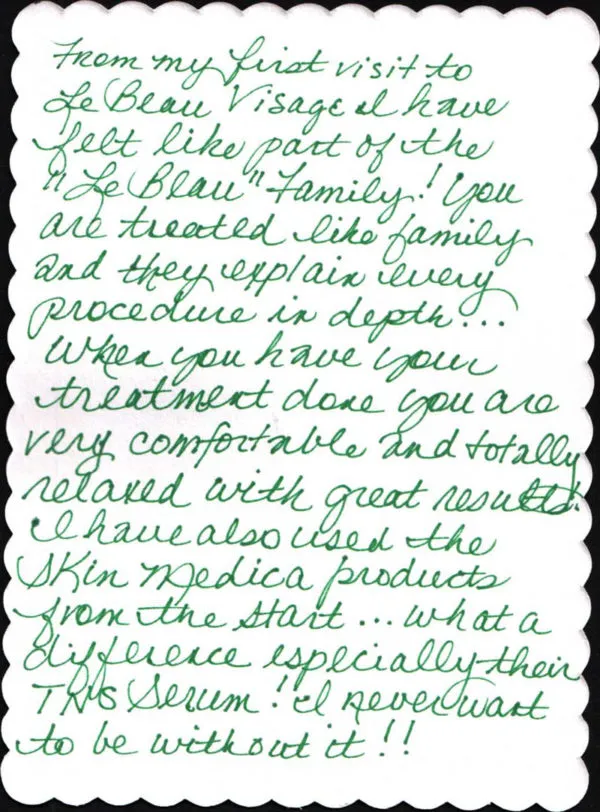 From my first visit to
Le Beau Visage I have
felt like part of the
"Le Beau" Family! You
are treated like family
and they explain every
procedure in depth...
When you have your
treatment done you are
very comfortable and totally
relaxed with great results!
I have also used the
SKin Medica products
from the start... what a
difference especially their
TNS Serum! I never want
to be without it!!